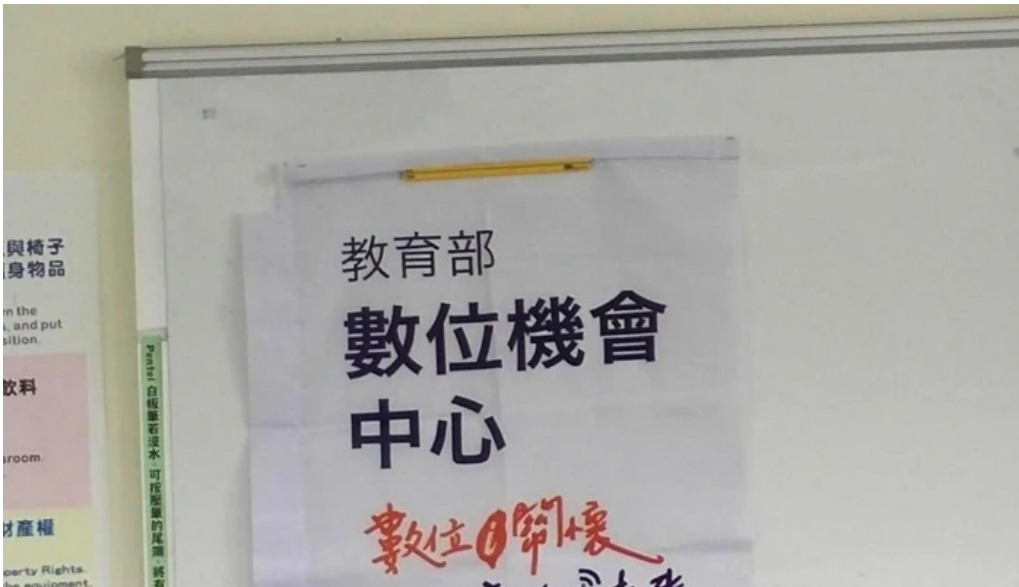 與椅子
身物品
n the
, and put
sition.
飲料
sroom.
財產權
perty Rights
the equipment
Pentel 白板筆若沒水,可按壓筆的尾端,將有
教育部
數位機會
中心
數位關懷